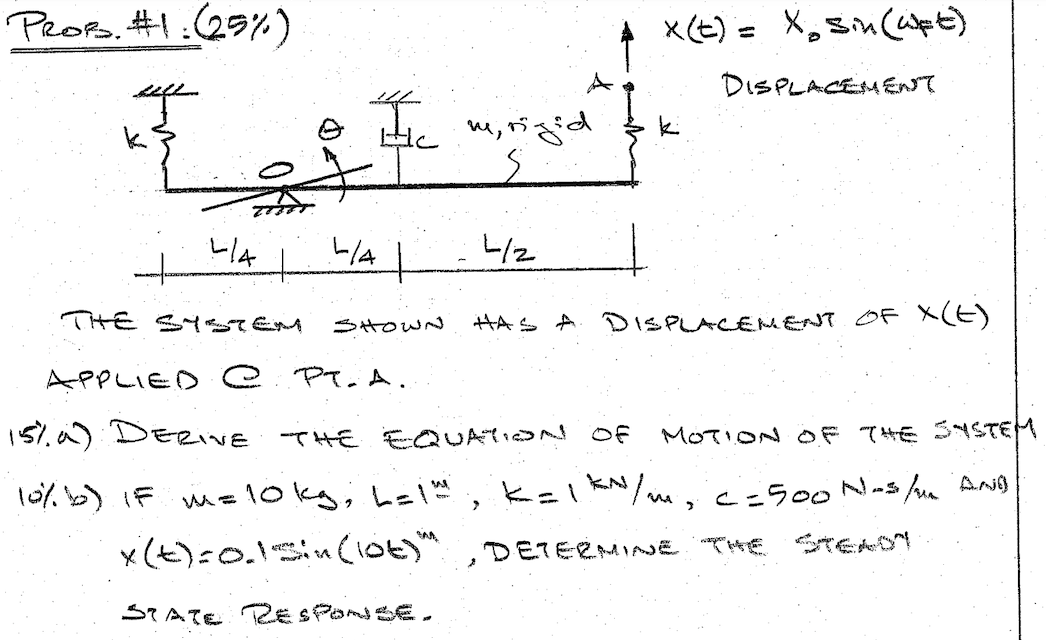 PROB. #1: (25%)
x(t) = X₀ sin(ωFt)
DISPLACEMENT
A
k
θ
c
m, rigid
k
O
L/4
L/4
L/2
THE SYSTEM SHOWN HAS A DISPLACEMENT OF x(t)
APPLIED @ PT. A.
15%. a) DERIVE THE EQUATION OF MOTION OF THE SYSTEM
10%. b) IF m = 10 kg, L = 1 m, k = 1 kN/m, c = 500 N-s/m AND
x(t) = 0.1 sin(10t) m, DETERMINE THE STEADY
STATE RESPONSE.